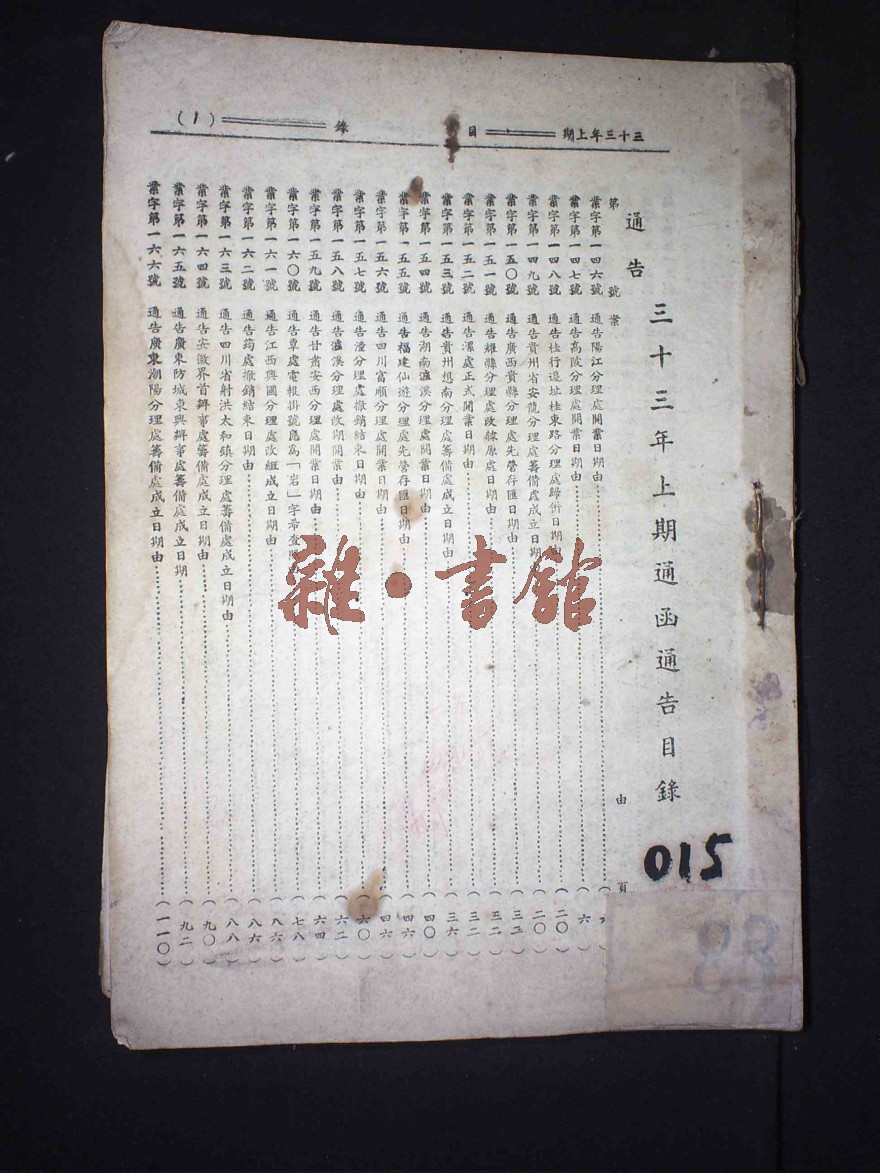 三十三年上期 目 錄 (1)
三十三年上期通函通告目錄
通告
第 號 案 由 頁
業字第一四六號 通告陽江分理處開業日期由
業字第一四七號 通告高陂分理處開業日期由 (六)
業字第一四八號 通告桂行遷址桂東路分理處歸併日期由 (二〇)
業字第一四九號 通告貴州省安龍分理處籌備處成立日期 (二〇)
業字第一五〇號 通告廣西貴縣分理處先營存匯日期由 (三二)
業字第一五一號 通告耀縣分理處改韓原處日期由 (三二)
業字第一五二號 通告漯處正式開業日期由 (三二)
業字第一五三號 通告貴州想南分理處籌備處成立日期由 (三六)
業字第一五四號 通告湖南瀘溪分理處開業日期由 (四〇)
業字第一五五號 通告福建仙遊分理處先營存匯日期由 (四六)
業字第一五六號 通告四川富順分理處開業日期由 (四六)
業字第一五七號 通告潼分理處撤銷結束日期由 (六〇)
業字第一五八號 通告瀘溪分理處改期開業由 (六二)
業字第一五九號 通告甘肅安西分理處開業日期由 (六四)
業字第一六〇號 通告覃處電報掛號應為「岩」字希查照由 (七八)
業字第一六一號 通告江西興國分理處改組成立日期由 (八六)
業字第一六二號 通告筠處撤銷結束日期由 (八六)
業字第一六三號 通告四川省射洪太和鎮分理處籌備處成立日期由 (八八)
業字第一六四號 通告安徽界首辦事處籌備處成立日期由 (九〇)
業字第一六五號 通告廣東防城東興辦事處籌備處成立日期 (九二)
業字第一六六號 通告廣東潮陽分理處籌備處成立日期由 (一一〇)
015
88
雜·書館